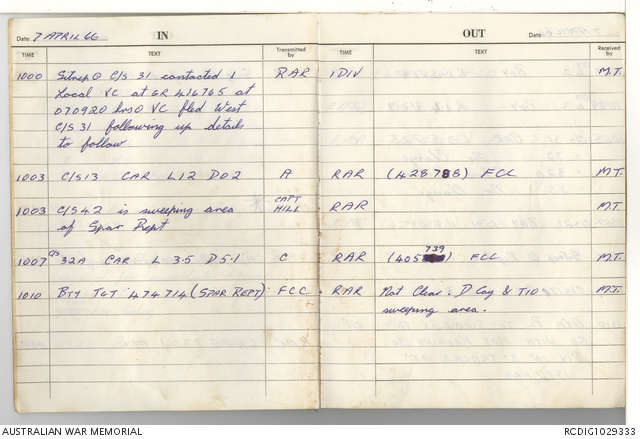 Date 7 APRIL 66 IN
OUT Date
TIME TEXT Transmitted by
TIME TEXT Received by
1000 Sitrep @ C/S 31 contacted 1 RAR 1 DIV M.T.
Local VC at GR 416765 at
070920 hrs @ VC fled West
C/S 31 following up details
to follow
1003 C/S 13 CAR L12 D02 A RAR (428788) FCC M.T.
1003 C/S 42 is sweeping area CAPT HILL RAR
of Spar Rept
1007 C/S 32A CAR L 3.5 D 5.1 C RAR (405739) FCC M.T.
1010 BTY TGT 474714 (SPAR REPT) FCC RAR Not Clear: D Coy & T10 M.T.
sweeping area.
AUSTRALIAN WAR MEMORIAL RCDIG1029333